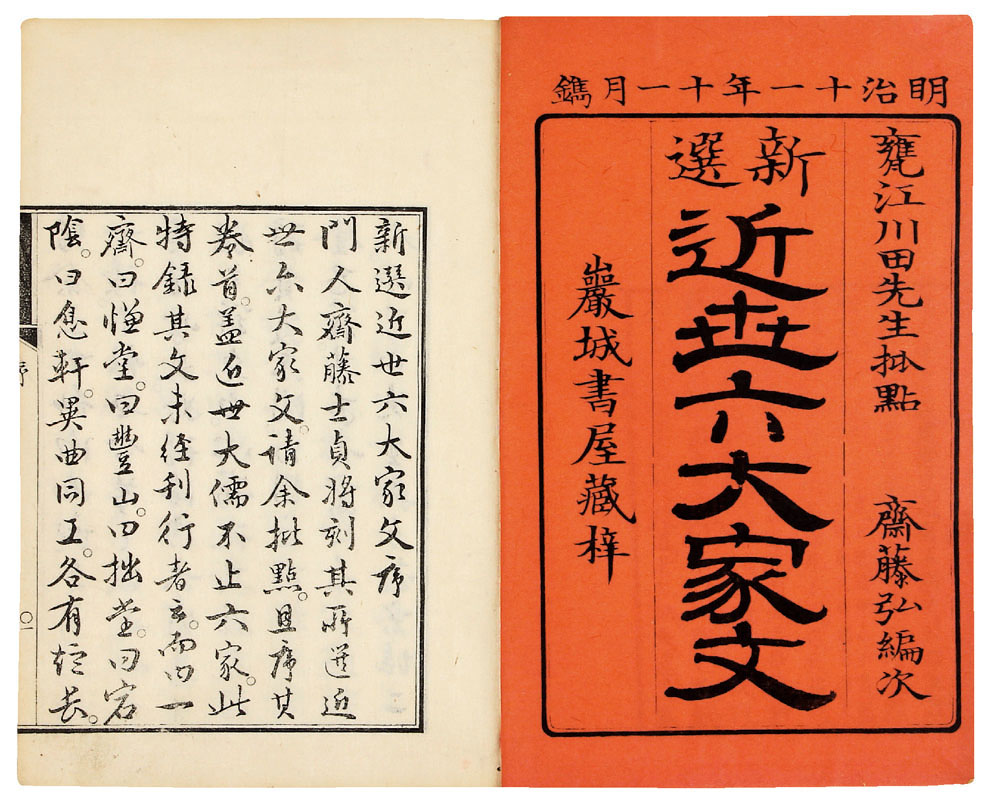 明治十一年十一月鐫
甕江川田先生批點　齋藤弘編次
新選
近世六大家文
巖城書屋藏梓
新選近世六大家文序
門人齋藤士貞將刻其所選近
世六大家文。請余批點。且序其
卷首。蓋近世大儒不止六家。此
特錄其文未經刊行者云。而曰一
齋。曰慊堂。曰豐山。曰拙堂。曰宕
陰。曰息軒。異曲同工。各有短長。
序
一